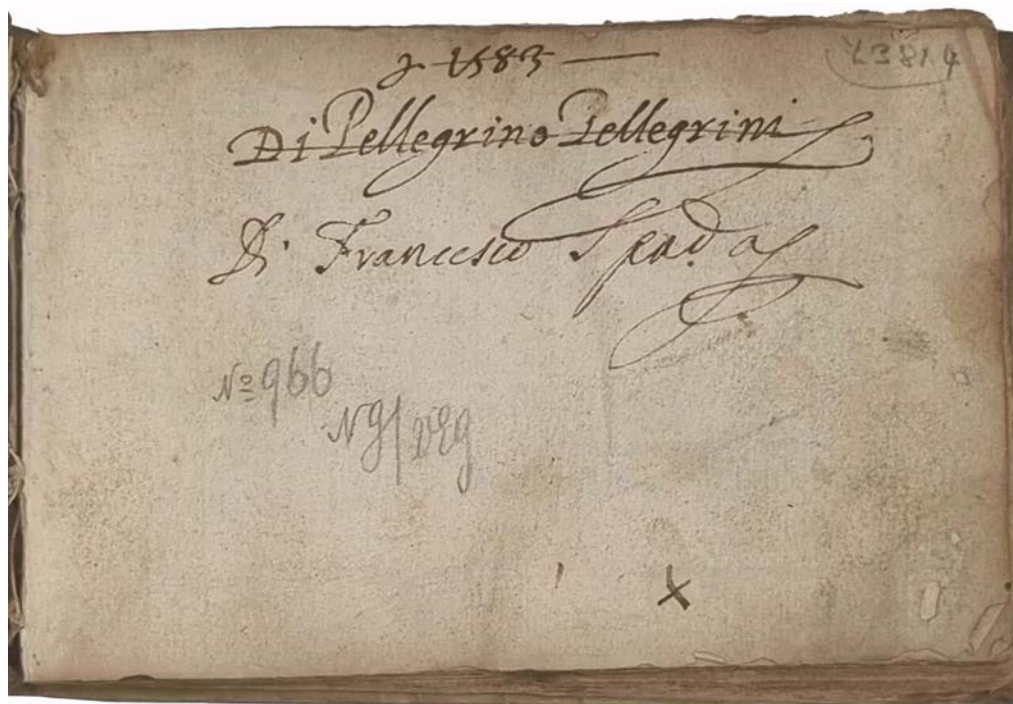 1583
Di Pellegrino Pellegrini
Di Francesco Spada
Nº 966
X